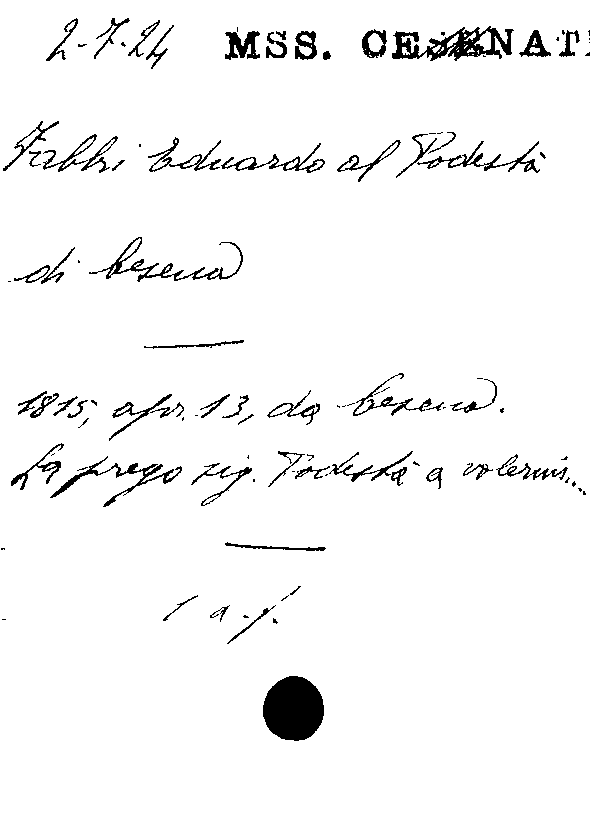 2-7-24 MSS. CESENATI
Fabbri Eduardo al Podestà
di Cesena
1815, apr. 13, da Cesena.
La prego sig. Podestà a volermi....
1 a.f.